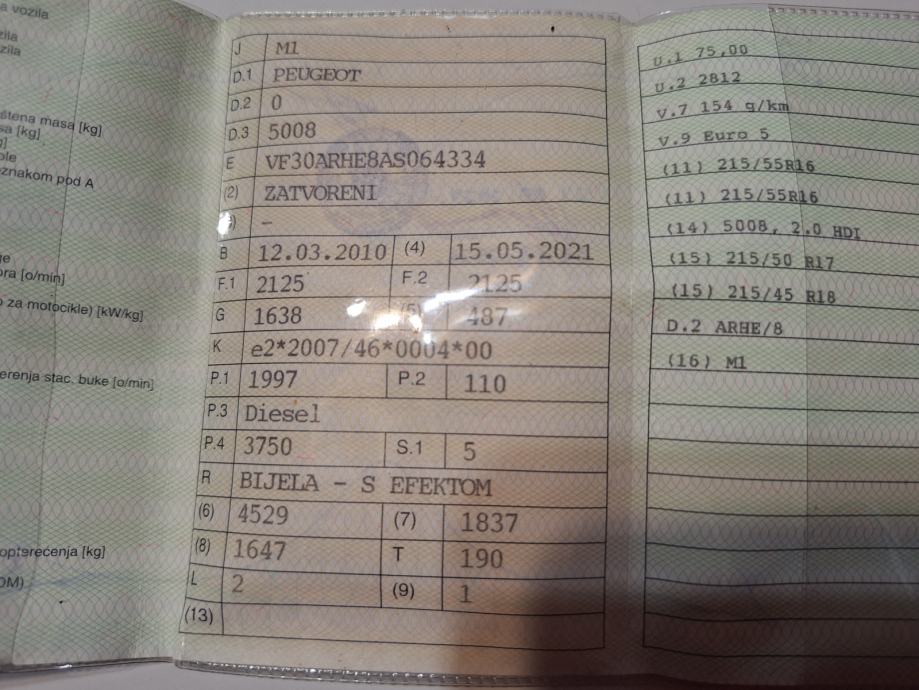 a vozila
zila
zila
štena masa [kg]
sa [kg]
g]
ole
znakom pod A
ge
ora [o/min]
o za motocikle) [kW/kg]
erenja stac. buke [o/min]
opterećenja [kg]
OM)
J M1
D.1 PEUGEOT
D.2 0
D.3 5008
E VF30ARHE8AS064334
(2) ZATVORENI
–
B 12.03.2010 (4) 15.05.2021
F.1 2125 F.2 2125
G 1638 (5) 487
K e2*2007/46*0004*00
P.1 1997 P.2 110
P.3 Diesel
P.4 3750 S.1 5
R BIJELA – S EFEKTOM
(6) 4529 (7) 1837
(8) 1647 T 190
L 2 (9) 1
(13)
U.1 75,00
U.2 2812
V.7 154 g/km
V.9 Euro 5
(11) 215/55R16
(11) 215/55R16
(14) 5008, 2.0 HDI
(15) 215/50 R17
(15) 215/45 R18
D.2 ARHE/8
(16) M1